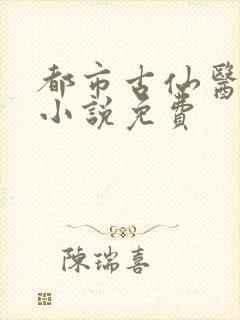 都市古仙醫
小說免費
陳瑞喜